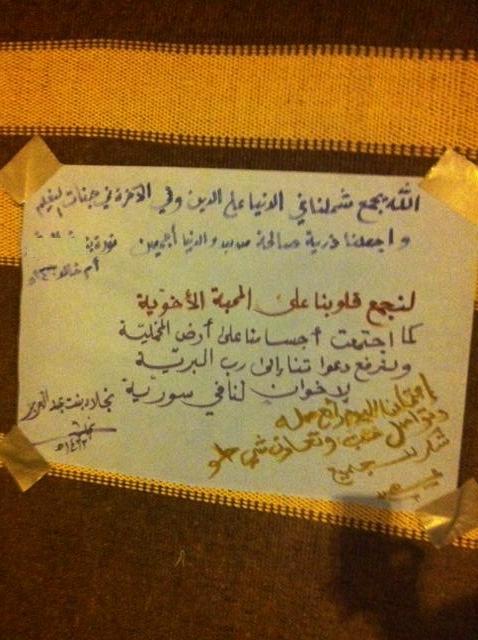 الله يجمع شملنا في الدنيا على الدين وفي الآخرة في جنات النعيم
واجعلنا ذرية صالحة والدنيا أجمعين
نورة
أم خالد
لنجمع قلوبنا على المحبة الأخوية
كما اجتمعت أجسامنا على أرض المخملية
ولنرفع دعواتنا إلى رب البرية
لإخوان لنا في سورية
نجلاء بنت عبد العزيز
اليوم
وتواصل وتعاون شي حلو
شكرا للجميع